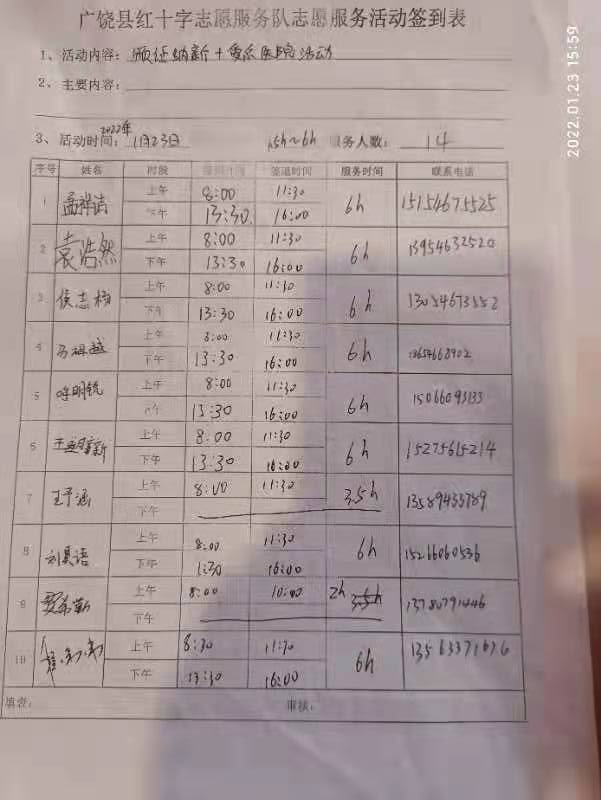 广饶县红十字志愿服务队志愿服务活动签到表
2022.01.23 15:59
1、活动内容: 颁证纳新+重乐医院活动
2、主要内容:
3、活动时间: 2022年1月23日 5h~6h 服务人数: 14
序号 姓名 时段 签到时间 签退时间 服务时间 联系电话
1 孟祥洁 上午 8:00 11:30 6h 15154675525
下午 13:30 16:00
2 袁浩然 上午 8:00 11:30 6h 13954632520
下午 13:30 16:00
3 侯志杨 上午 8:00 11:30 6h 13054673552
下午 13:30 16:00
4 上午 8:00 11:30 6h
下午 13:30 16:00
5 上午 8:00 11:30 6h 15066093133
下午 13:30 16:00
6 上午 8:00 11:30 6h 15275615214
下午 13:30 16:00
7 王予涵 上午 8:00 11:30 3.5h 13589433789
下午
8 刘昊语 上午 8:00 11:30 6h 15266060536
下午 1:30 16:00
9 贾希勤 上午 8:00 10:00 2h 3.5h 13780791446
下午
10 上午 8:30 11:30 6h 13563371676
下午 13:30 16:00
填表: 审核: